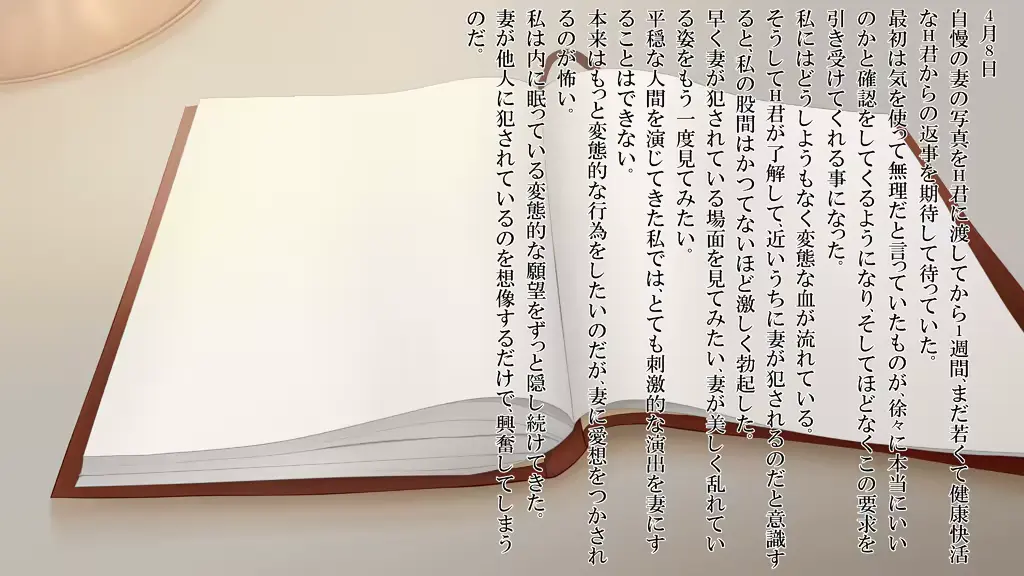 4月8日
自慢の妻の写真をH君に渡してから1週間、まだ若くて健康快活
なH君からの返事を期待して待っていた。
最初は気を使って無理だと言っていたものが、徐々に本当にいい
のかと確認をしてくるようになり、そしてほどなくこの要求を
引き受けてくれる事になった。
私にはどうしようもなく変態な血が流れている。
そうしてH君が了解して、近いうちに妻が犯されるのだと意識す
ると、私の股間はかつてないほど激しく勃起した。
早く妻が犯されている場面を見てみたい、妻が美しく乱れてい
る姿をもう一度見てみたい。
平穏な人間を演じてきた私では、とても刺激的な演出を妻にす
ることはできない。
本来はもっと変態的な行為をしたいのだが、妻に愛想をつかされ
るのが怖い。
私は内に眠っている変態的な願望をずっと隠し続けてきた。
妻が他人に犯されているのを想像するだけで、興奮してしまう
のだ。